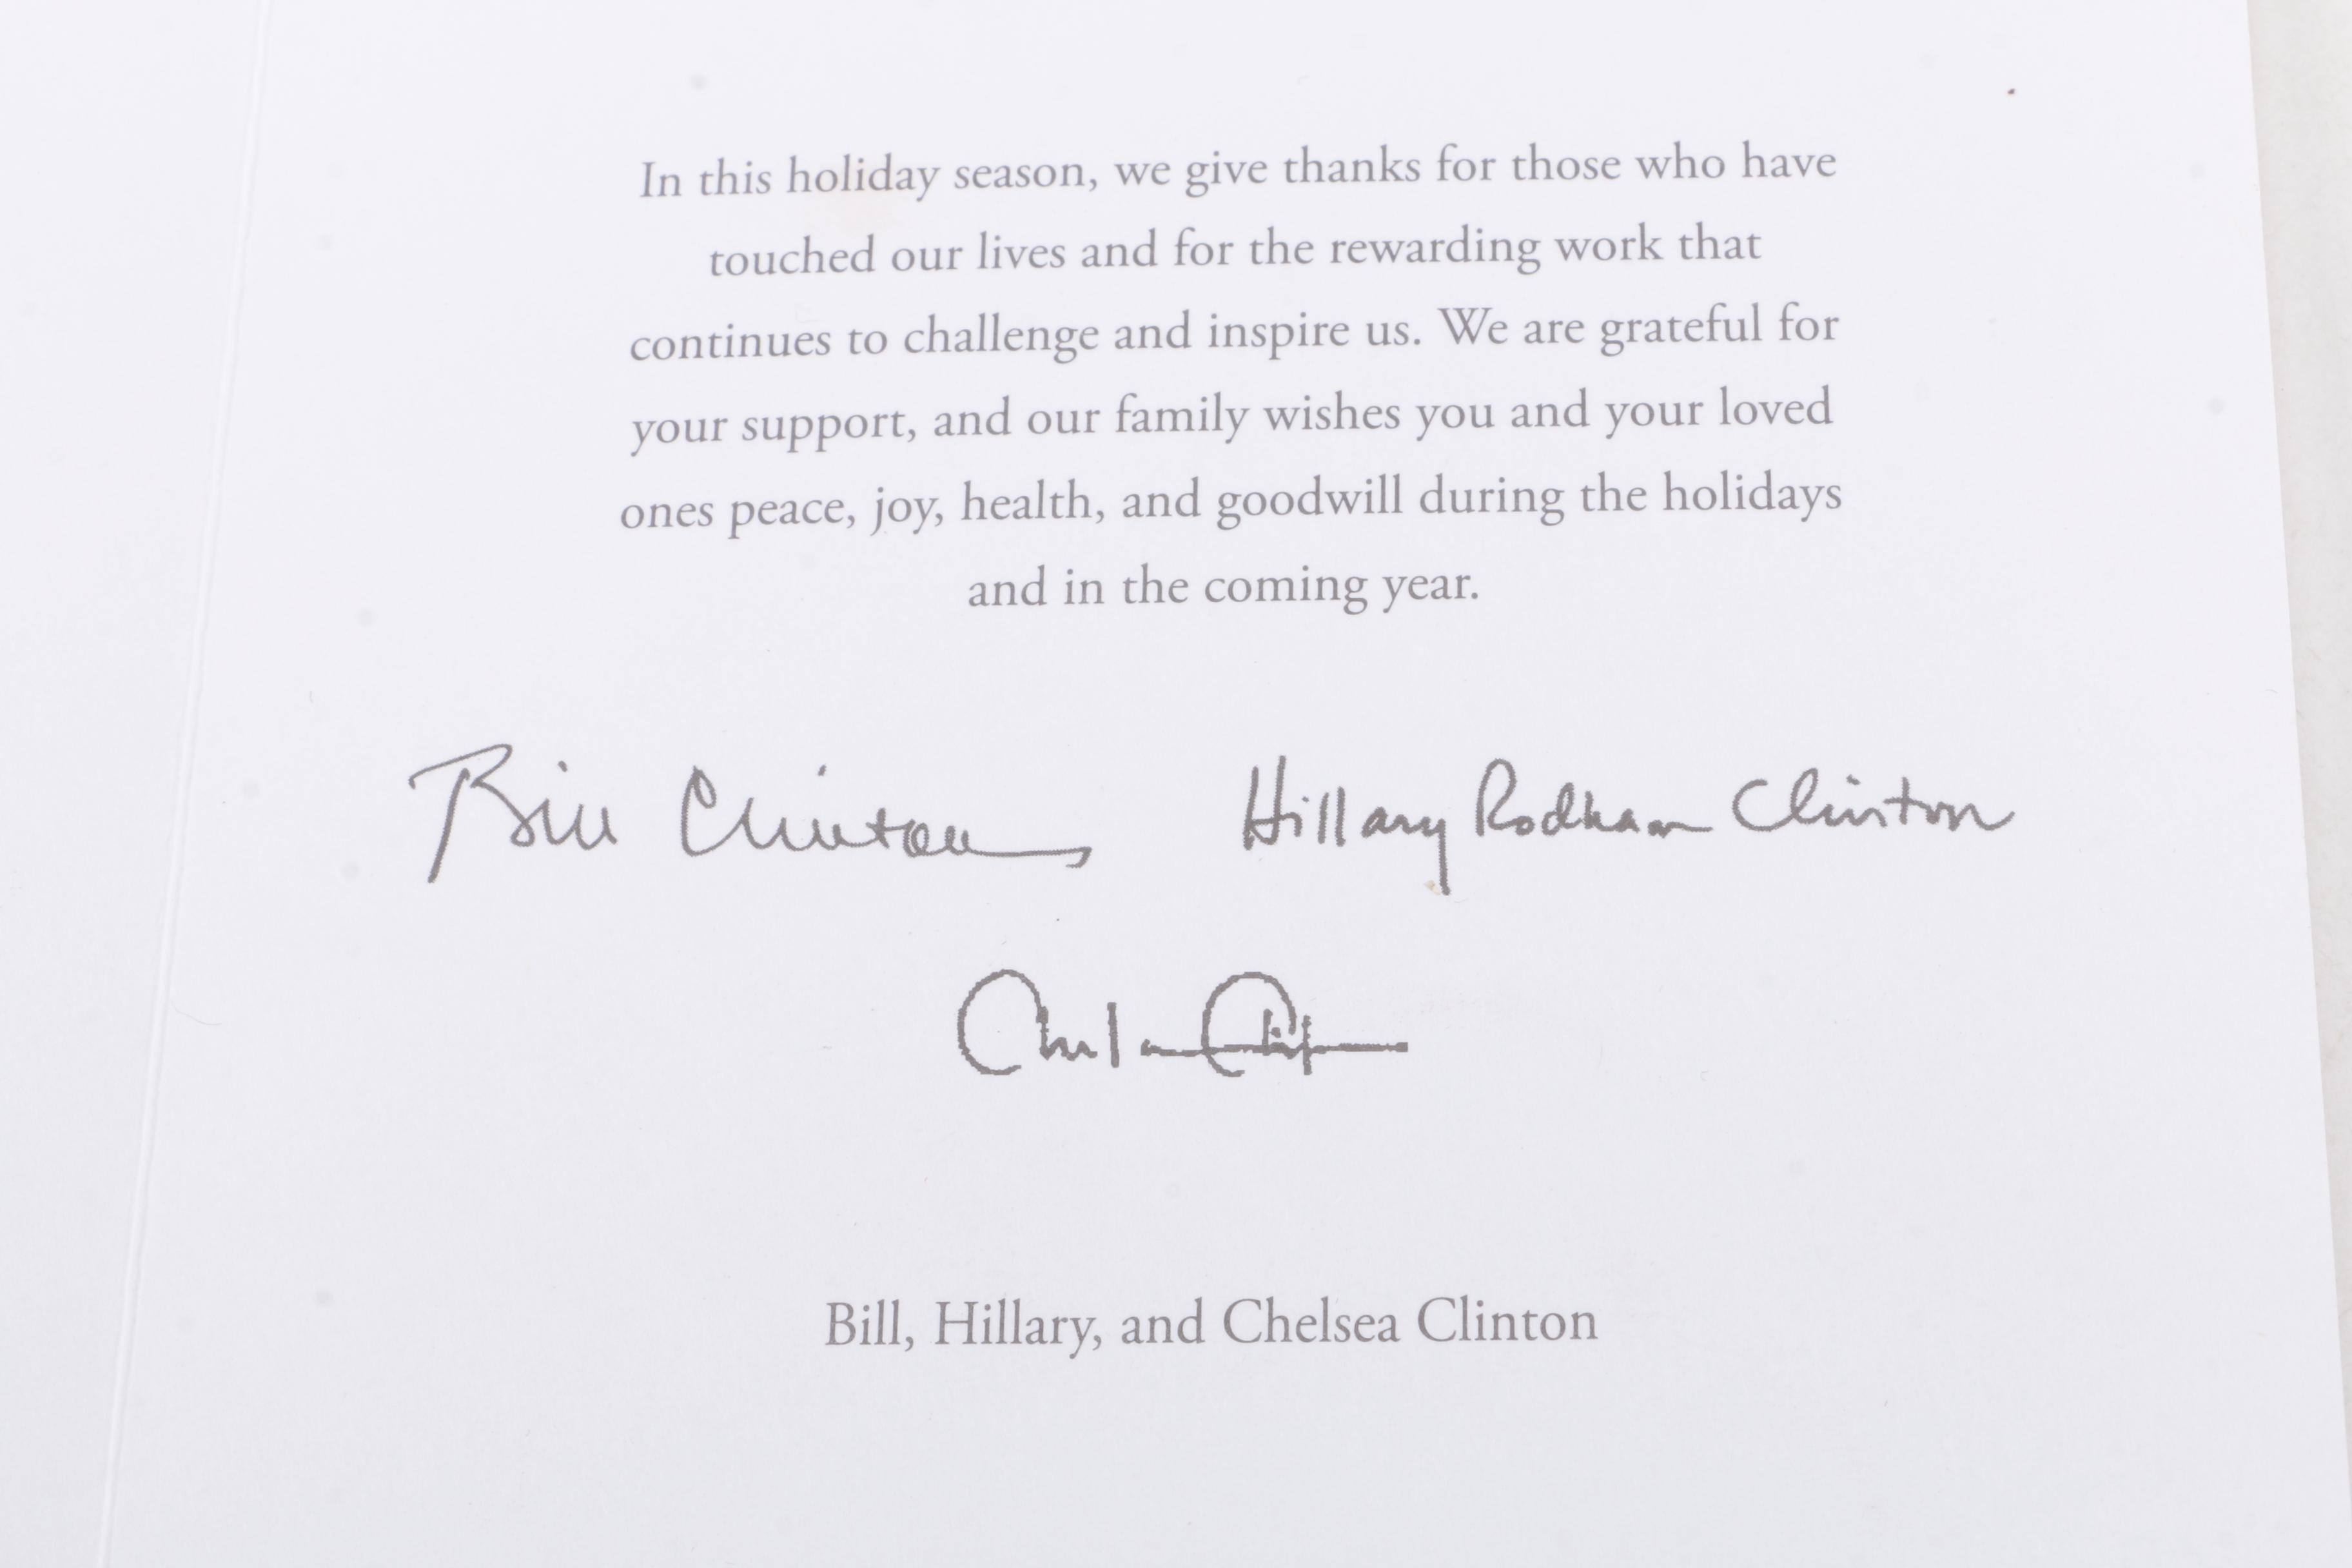 In this holiday season, we give thanks for those who have
touched our lives and for the rewarding work that
continues to challenge and inspire us. We are grateful for
your support, and our family wishes you and your loved
ones peace, joy, health, and goodwill during the holidays
and in the coming year.
Bill Clinton Hillary Rodham Clinton
Chelsea Clinton
Bill, Hillary, and Chelsea Clinton